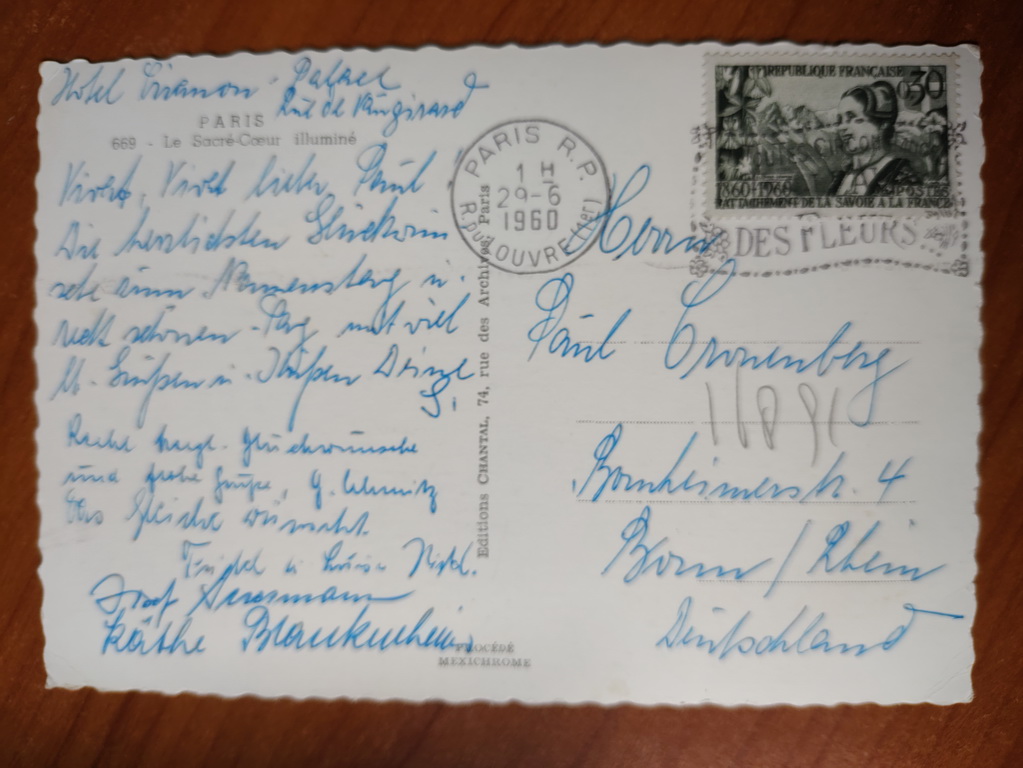 Hotel Trianon Palace
Rue de Vaugirard
PARIS
669 - Le Sacré-Cœur illuminé
Vivat, Vivat lieber Paul
Die herzlichsten Glückwün
sche zum Namenstag u.
recht schönen Tag mit viel
Grüßen u. Küßen Deine
Glückwünsche
und große Grüße, G. Schmitz
Das Gleiche wünscht.
u Luise
Josef
Käthe Blankenheim
Editions CHANTAL, 74, rue des Archives, Paris
PROCÉDÉ
MEXICHROME
PARIS R.P.
1 H
29-6
1960
R. DU LOUVRE (1er)
REPUBLIQUE FRANÇAISE
0,30
1860-1960
POSTES
RATTACHEMENT DE LA SAVOIE A LA FRANCE
DES FLEURS
Herrn
Paul Cronenberg
Bornheimerstr. 4
Bonn / Rhein
Deutschland